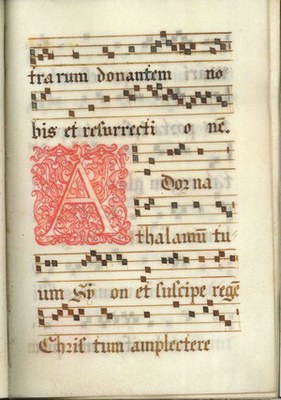 tra rum donantem no
bis et resurrecti o nē.
A
Dor na
thalamū tu
um Sy on et suscipe regē
Chris tum amplectere